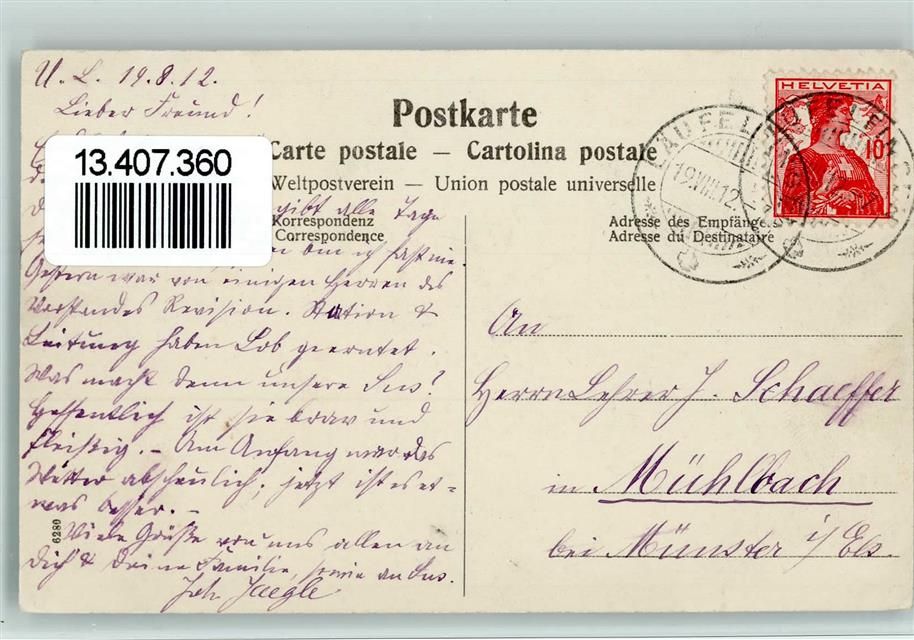 U. L. 19.8.12.
Lieber Freund!
13.407.360
gibt alle Tage
um ich fast nie.
Gestern war von einigen Herren des
Vorstandes Revision. Station &
Leitung haben Lob geerntet.
Was macht denn unsere Sus?
Hoffentlich ist sie brav und
fleißig. – Am Anfang war das
Wetter abscheulich; jetzt ist es et=
was besser. –
Viele Grüße von uns allen an
Dich & Deine Familie, sowie an Sus.
Joh. Jaegle
6280
Postkarte
Carte postale — Cartolina postale
Weltpostverein — Union postale universelle
Korrespondenz
Correspondence
Adresse des Empfängers
Adresse du Destinataire
HELVETIA
10
LÄUFELFINGEN
19.VIII.12
An
Herrn Lehrer J. Schaeffer
in Mühlbach
bei Münster i/Els.